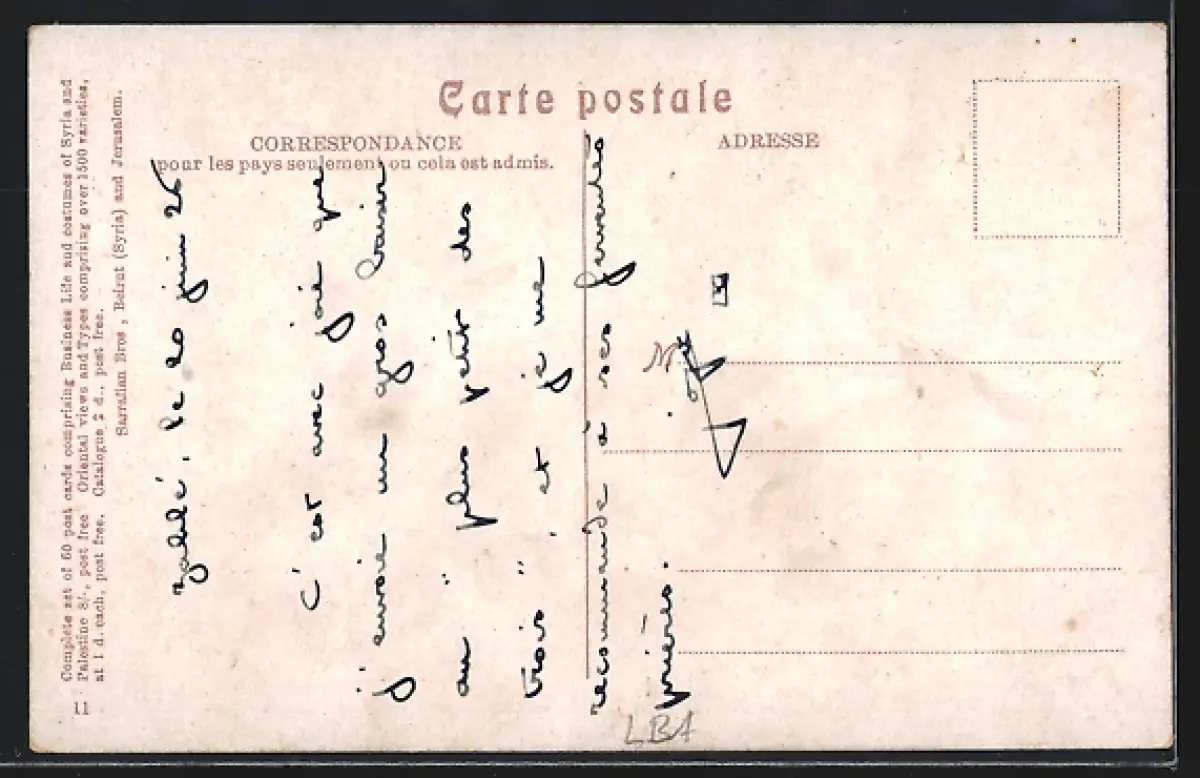 Carte postale
CORRESPONDANCE
pour les pays seulement ou cela est admis.
ADRESSE
Complete set of 60 post cards comprising Business Life and costumes of Syria and
Palestine 8/-, post free Oriental views and Types comprising over 1500 varieties,
at 1 d. each, post free. Catalogue 2 d., post free.
Sarrafian Bros, Beirut (Syria) and Jerusalem.
11
Zahlé, le 20 juin 26
C'est avec joie que
j'envoie un gros baiser
au "plus petit des
trois", et je me
recommande à ses ferventes
prières.
M
LBA